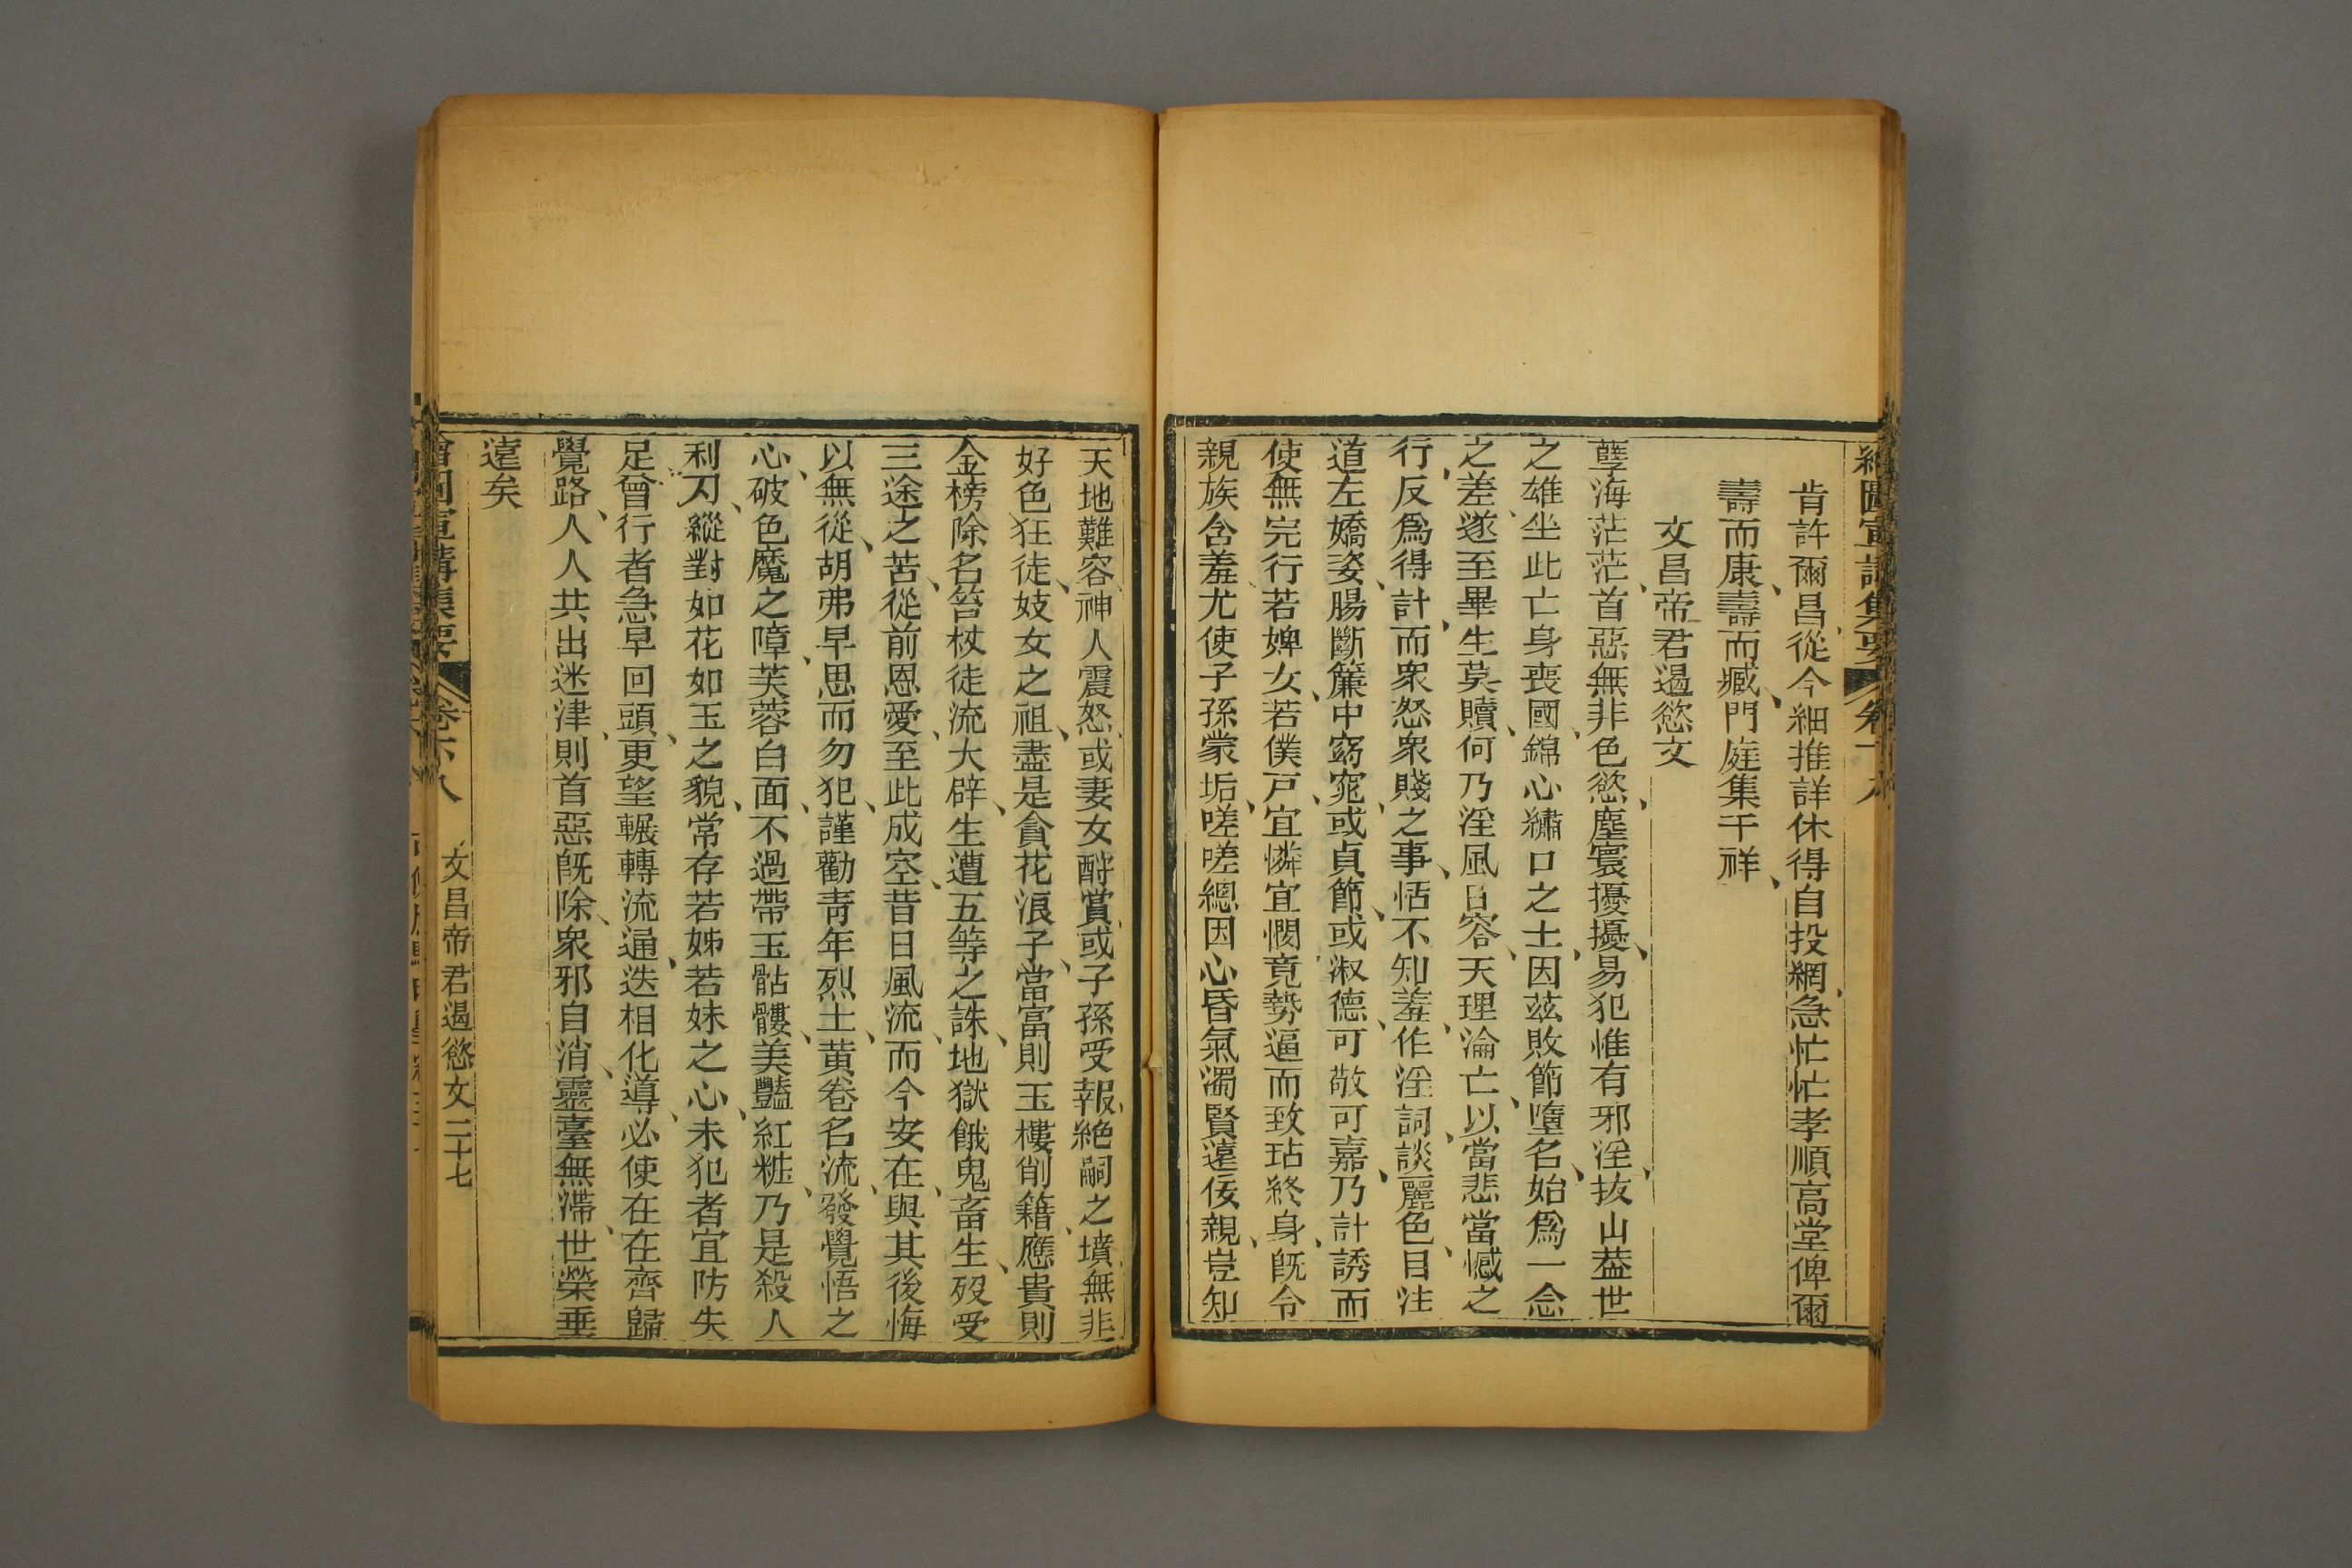 肯許爾昌從今細推詳休得自投網急忙忙孝順高堂俾爾
壽而康、壽而臧、門庭集千祥、
文昌帝君遏慾文
孽海茫茫、首惡無非色慾、塵寰擾擾、易犯惟有邪淫、拔山蓋世
之雄、坐此亡身喪國、錦心繡口之士、因茲敗節墮名、始爲一念
之差、遂至畢生莫贖、何乃淫風日容、天理淪亡、以當悲當憾之
行、反爲得計、而衆怒衆賤之事、恬不知羞、作淫詞、談麗色、目注
道左嬌姿、腸斷簾中窈窕、或貞節、或淑德、可敬可嘉、乃計誘而
使無完行、若婢女、若僕戸、宜憐宜憫、竟勢逼而致玷終身、旣令
親族含羞、尤使子孫蒙垢、嗟嗟總因心昏氣濁、賢遠佞親、豈知
天地難容、神人震怒、或妻女酧賞、或子孫受報、絶嗣之墳無非
好色狂徒、妓女之祖、盡是貪花浪子、當富則玉樓削籍、應貴則
金榜除名、笞杖徒流大辟、生遭五等之誅、地獄餓鬼畜生、歿受
三途之苦、從前恩愛、至此成空、昔日風流、而今安在、與其後悔
以無從、胡弗早思而勿犯、謹勸青年烈士、黄卷名流、發覺悟之
心、破色魔之障、芙蓉白面、不過帶玉骷髏、美豔紅粧、乃是殺人
利刃、縱對如花如玉之貌、常存若姊若妹之心、未犯者宜防失
足、曾行者急早回頭、更望輾轉流通、迭相化導、必使在在齊歸
覺路、人人共出迷津、則首惡旣除、衆邪自消、靈臺無滯、世榮垂
遠矣
文昌帝君遏慾文 二十七